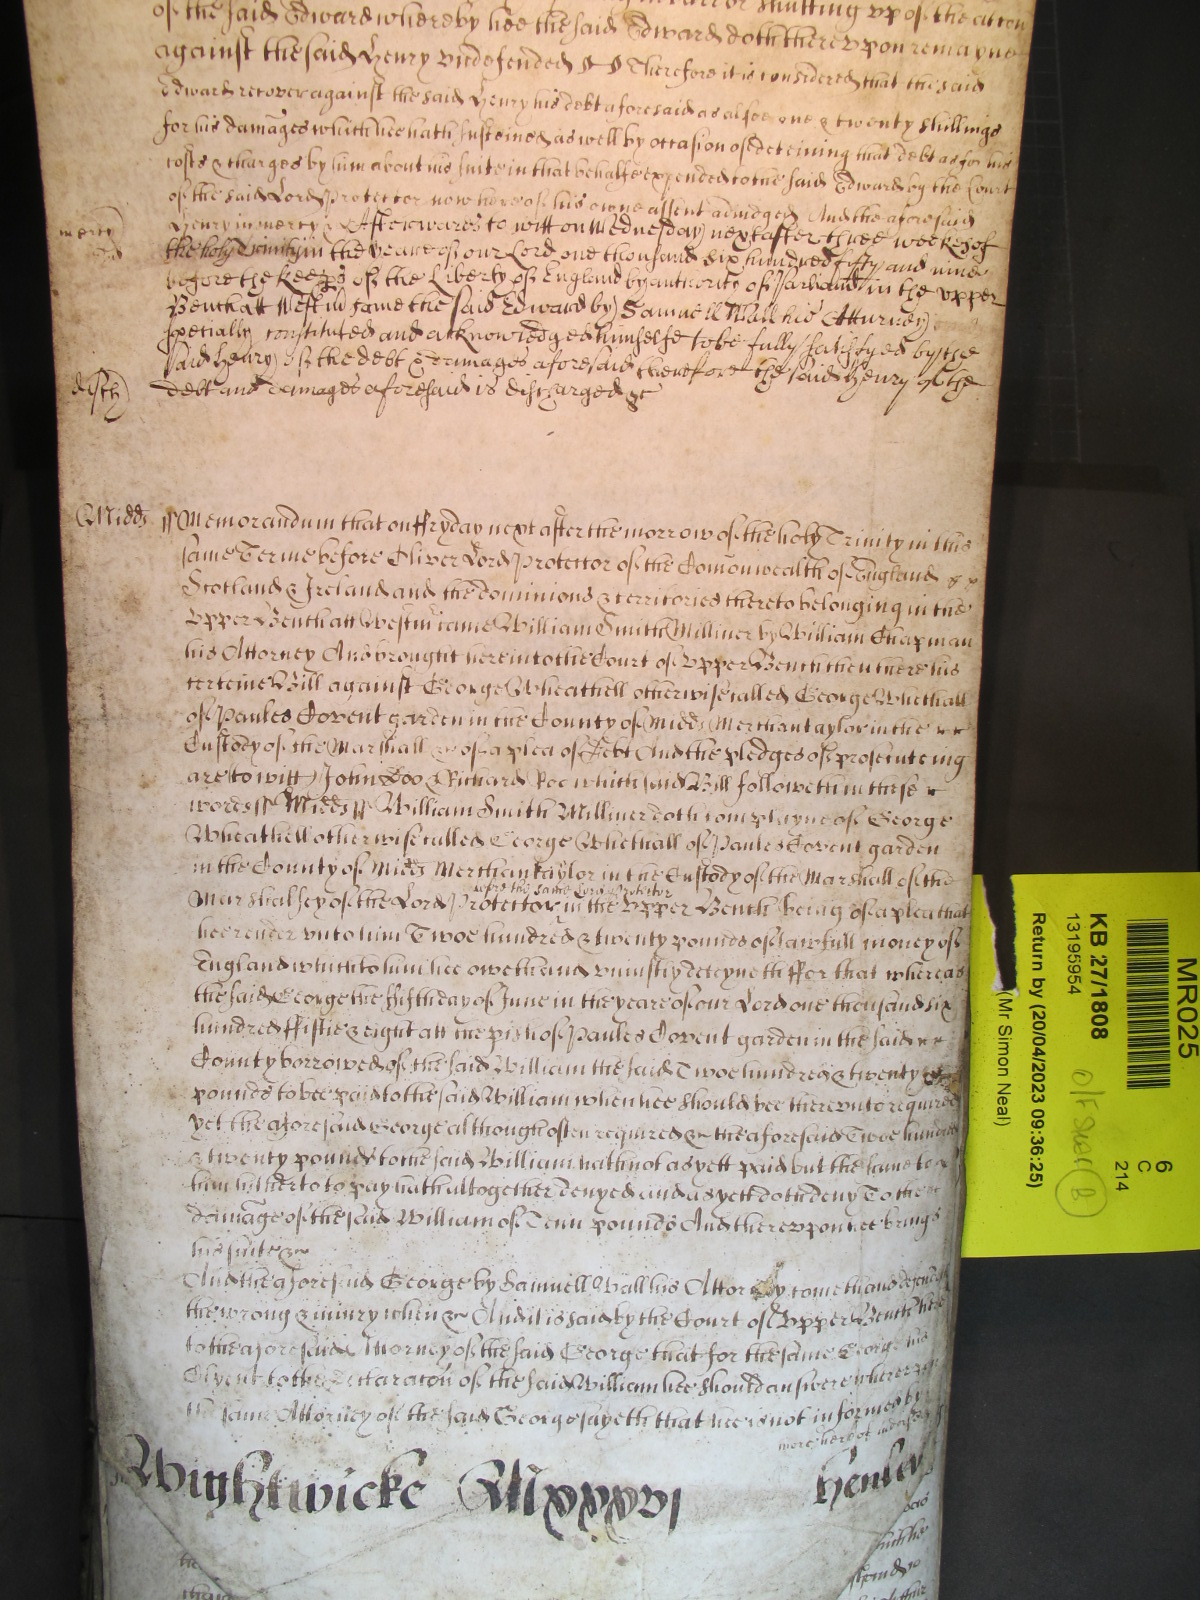 of the said Edward whereby hee the said Edward doth thereupon remayne
against the said Henry undefended Therefore it is considered that the said
Edward recover against the said Henry his debt aforesaid as alsoe one & twenty shillings
for his damages which hee hath susteined as well by occasion of deteining that debt as for his
costs & charges by him about his suite in that behalfe expended to the said Edward by the Court
of the said Lord Protector now here of his owne assent adiudged And the aforesaid
mercy
Henry in mercy & Afterwards to witt on Wednesday next after three weekes of
the holy Trinity in the yeare of our Lord one thousand six hundred fifty and nine
before the Keeps of the Liberty of England by authority of Parliamt in the upper
Bench att Westm came the said Edward by Samuell Wall his Atturney
specially constituted and acknowledged himselfe to be fully satisfyed by the
said Henry of the debt & damages aforesaid therefore the said Henry of the
disch
debt and damages aforesaid is discharged &c
Midds
Memorandum that on ffryday next after the morrow of the holy Trinity in this
same Terme before Oliver Lord Protector of the Comonwealth of England
Scotland & Ireland and the dominions & territories thereto belonging in the
Upper Bench att Westm came William Smith Milliner by William Chapman
his Attorney And brought here into the Court of Upper Bench then there his
certeine Bill against George Wheathell otherwise called George Whethall
of Paules Covent garden in the County of Midds Merchantaylor in the
Custody of the Marshall &c of a plea of Debt And the pledges of prosecuteing
are to witt John Doo & Richard Roe which said Bill followeth in these
words ss Midds ss William Smith Milliner doth complayne of George
Wheathell otherwise called George Whethall of Paules Covent garden
in the County of Midds Merchantaylor in the Custody of the Marshall of the
Marshalsey of the Lord Protector in the Upper Bench being of a plea that
before the same Lord Protector
hee render unto him Twoe hundred & twenty pounds of lawfull money of
England which to him hee oweth and uniustly deteyneth ffor that whereas
the said George the ffifth day of June in the yeare of our Lord one thousand six
hundred ffiftie & eight att the pish of Paules Covent garden in the said
County borrowed of the said William the said Twoe hundred & twenty
pounds to bee paid to the said William when hee should bee thereunto required
yet the aforesaid George although often required &c the aforesaid Twoe hundred
& twenty pounds to the said William hath not as yett paid but the same to
him hitherto to pay hath altogether denyed and as yett doth deny To the
damage of the said William of Tenn pounds And thereupon hee brings
his suite &c
And the aforesaid George by Samuell Wall his Attorney cometh and defendeth
the wrong & iniury when &c And it is said by the Court of Upper Bench here
to the aforesaid Attorney of the said George that for the same George his
Clyent to the Declaracon of the said William hee should answere whereupon
the same Attorney of the said George sayeth that hee is not informed by
Wightwicke MXXXVI Henley
MR025
6
C
214
KB 27/1808
13195954
O/F Sheet B
Return by (20/04/2023 09:36:25)
(Mr Simon Neal)